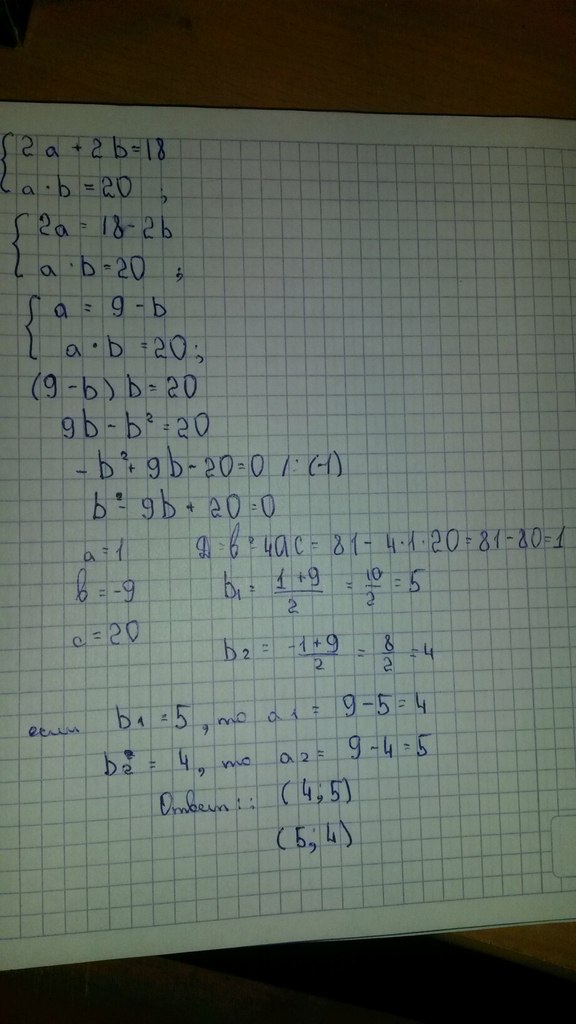 {2a + 2b = 18
{a · b = 20 ;
{2a = 18 - 2b
{a · b = 20 ;
{a = 9 - b
{a · b = 20 ;
(9 - b) b = 20
9b - b² = 20
- b² + 9b - 20 = 0 / : (-1)
b² - 9b + 20 = 0
a = 1 D = b² - 4ac = 81 - 4 · 1 · 20 = 81 - 80 = 1
b = -9 b₁ = (1 + 9)/2 = 10/2 = 5
c = 20 b₂ = (-1 + 9)/2 = 8/2 = 4
если b₁ = 5 , то a₁ = 9 - 5 = 4
b₂ = 4 , то a₂ = 9 - 4 = 5
Ответ : : (4 ; 5)
(5 ; 4)